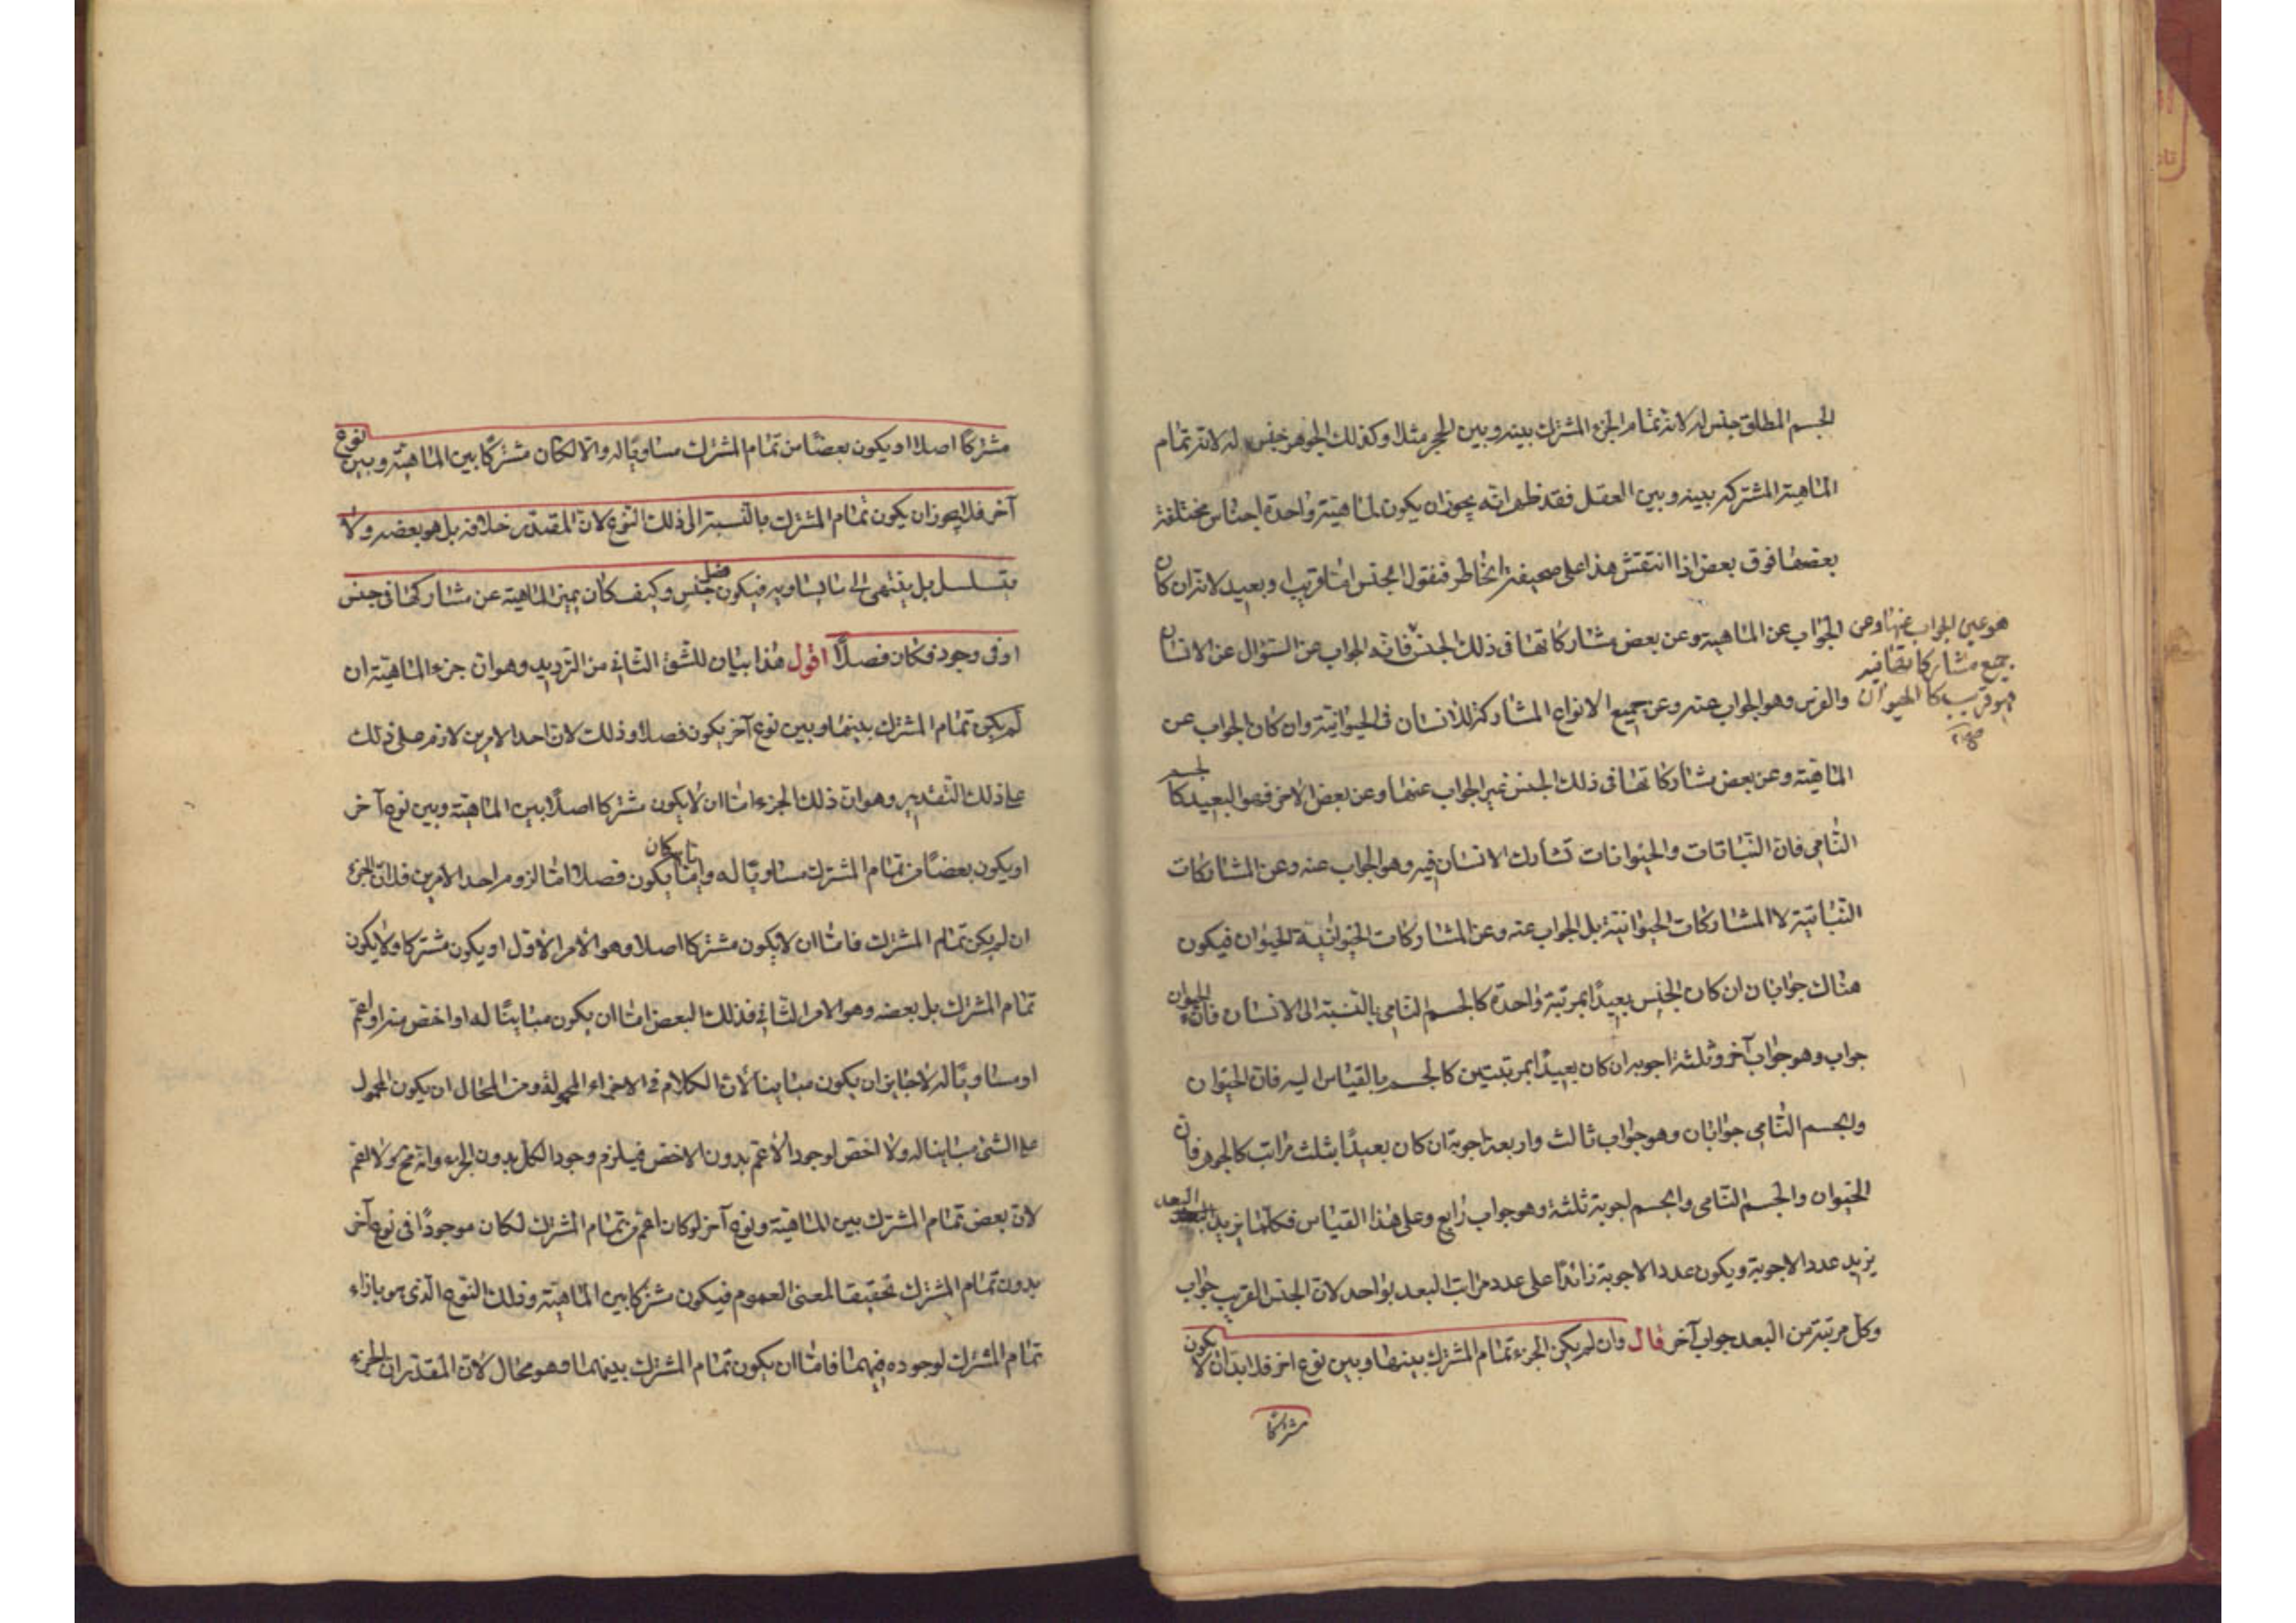 الجسم المطلق جنس له لانه تمام الجزء المشترك بينه وبين الحجر مثلا وكذلك الجوهر جنس له لانه تمام
الماهية المشتركة بينه وبين العقل فقد ظهر انه يجوز ان يكون لماهية واحدة اجناس مختلفة
بعضها فوق بعض اذا انتقش هذا على صحيفة الخاطر فنقول الجنس اما قريب او بعيد لانه ان كان
الجواب عن الماهية وعن بعض مشاركاتها فى ذلك الجنس فانه الجواب عن السؤال عن الانسان
هو عين الجواب عنها وعن
جميع مشاركاتها فيه
فهو قريب كالحيوان
صح
والفرس وهو الجواب عنه وعن جميع الانواع المشاركة للانسان فى الحيوانية وان كان الجواب عن
الماهية وعن بعض مشاركاتها فى ذلك الجنس غير الجواب عنها وعن بعض الاخر فهو البعيد كالجسم
النامى فان النباتات والحيوانات تشارك الانسان فيه وهو الجواب عنه وعن المشاركات
النباتية لا المشاركات الحيوانية بل الجواب عنه وعن المشاركات الحيوانية الحيوان فيكون
هناك جوابان ان كان الجنس بعيدًا بمرتبة واحدة كالجسم النامى بالنسبة الى الانسان فان الحيوان
جواب وهو جواب آخر وثلثة اجوبة ان كان بعيدًا بمرتبتين كالجسم بالقياس اليه فان الحيوان
والجسم النامى جوابان وهو جواب ثالث واربعة اجوبة ان كان بعيدًا بثلث مراتب كالجوهر فان
الحيوان والجسم النامى والجسم اجوبة ثلثة وهو جواب رابع وعلى هذا القياس فكلما يزيد البعد
يزيد عدد الاجوبة ويكون عدد الاجوبة زائدًا على عدد مراتب البعد بواحد لان الجنس القريب جواب
وكل مرتبة من البعد جواب آخر قال وان لم يكن الجزء تمام المشترك بينها وبين نوع اخر فلا بد ان لا يكون
مشتركًا
مشتركًا اصلا او يكون بعضًا من تمام المشترك مساويًا له والا لكان مشتركًا بين الماهية وبين نوع
آخر فلا يجوز ان يكون تمام المشترك بالنسبة الى ذلك النوع لان المقدر خلافه بل هو بعضه ولا
يتسلسل بل ينتهى الى ما يساويه فيكون فصل جنس وكيف كان يميز الماهية عن مشاركها فى جنس
او فى وجود فكان فصلًا اقول هذا بيان للشق الثانى من الترديد وهو ان جزء الماهية ان
لم يكن تمام المشترك بينها وبين نوع آخر يكون فصلا وذلك لان احد الامرين لازم على ذلك
على ذلك التقدير وهو ان ذلك الجزء اما ان لا يكون مشتركا اصلًا بين الماهية وبين نوع آخر
او يكون بعضًا من تمام المشترك مساويًا له وايا ما كان يكون فصلا اما لزوم احد الامرين فلان الجزء
ان لم يكن تمام المشترك فاما ان لا يكون مشتركا اصلا وهو الامر الاول او يكون مشتركا ولا يكون
تمام المشترك بل بعضه وهو الامر الثانى فذلك البعض اما ان يكون مباينًا له او اخص منه او اعم
او مساويًا له لا جايز ان يكون مباينا لان الكلام فى الاجزاء المحمولة ومن المحال ان يكون المحمول
على الشئ مباينا له ولا اخص لوجود الاعم بدون الاخص فيلزم وجود الكل بدون الجزء وانه مح ولا اعم
لان بعض تمام المشترك بين الماهية ونوع آخر لو كان اعم من تمام المشترك لكان موجودًا فى نوع آخر
بدون تمام المشترك تحقيقا لمعنى العموم فيكون مشتركا بين الماهية وذلك النوع الذى هو بازاء
تمام المشترك لوجوده فيهما فاما ان يكون تمام المشترك بينهما وهو محال لان المقدر ان الجزء